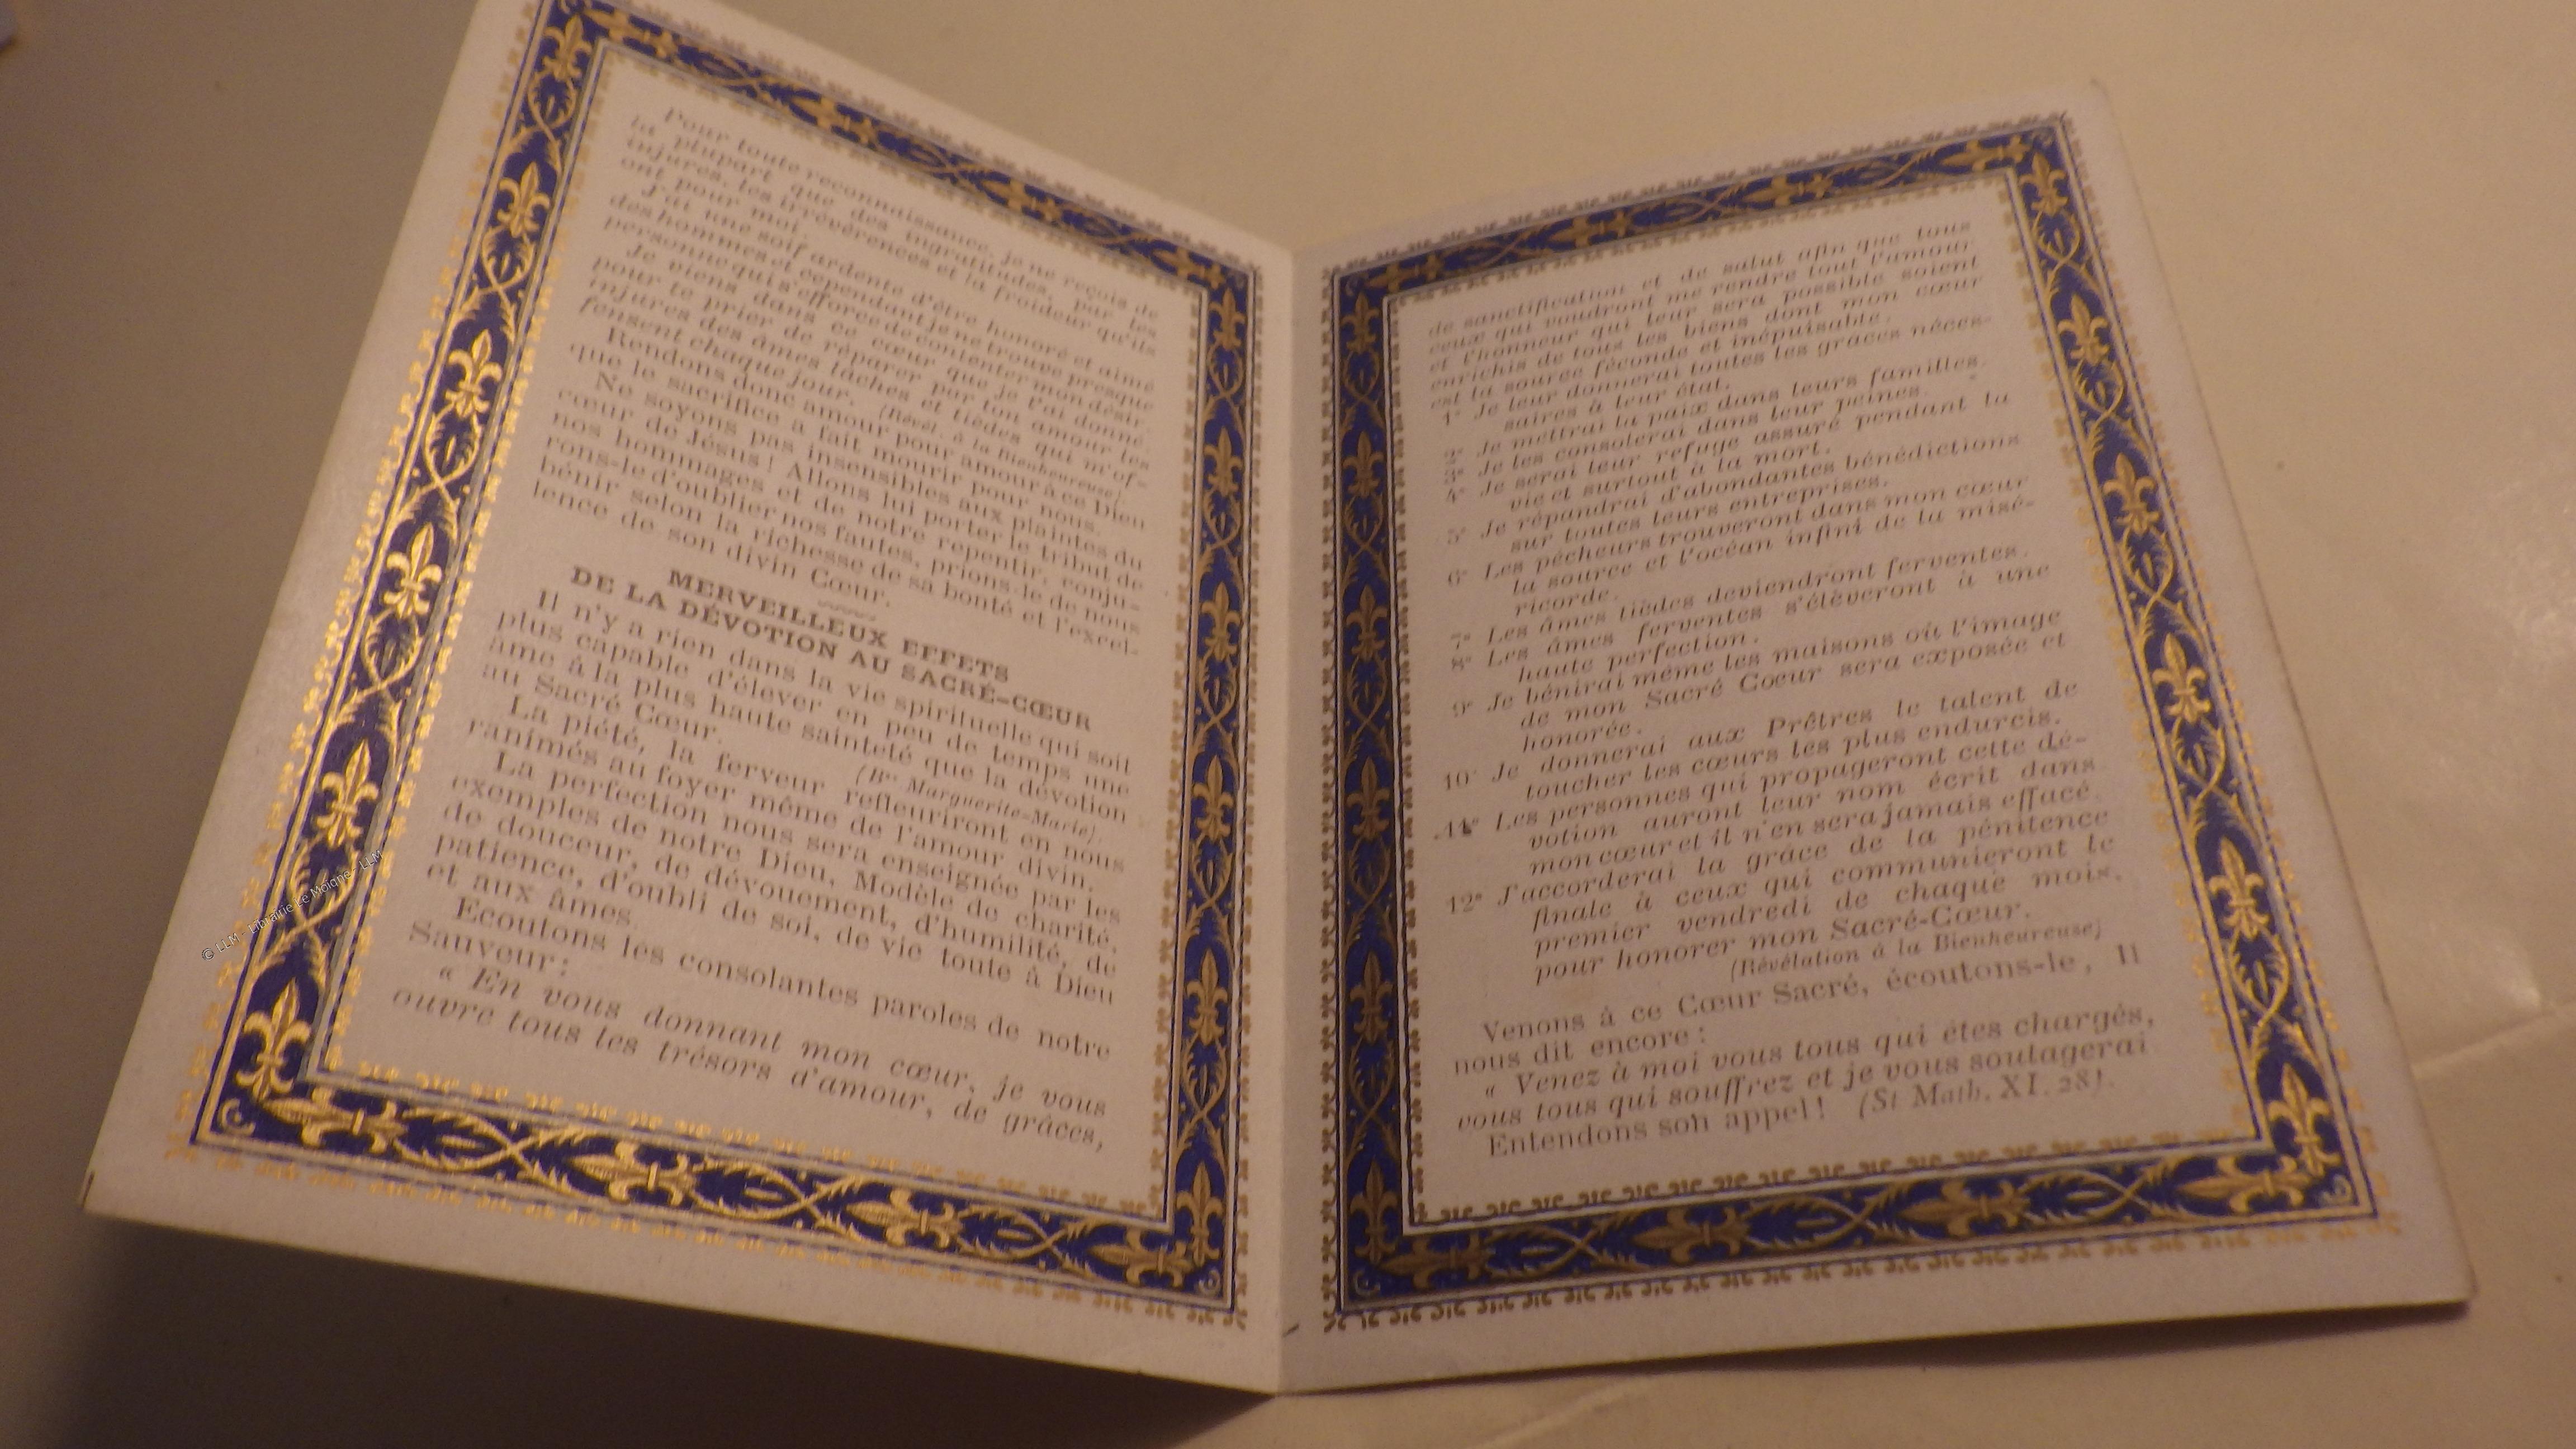 Pour toute reconnaissance, je ne reçois de
la plupart que des ingratitudes, par les
injures, les irrévérences et la froideur qu'ils
ont pour moi.
J'ai une soif ardente d'être honoré et aimé
des hommes et cependant je ne trouve presque
personne qui s'efforce de contenter mon désir.
Je viens dans ce cœur que je t'ai donné
pour te prier de réparer par ton amour les
injures des âmes lâches et tièdes qui m'of-
fensent chaque jour. (Révél. à la Bienheureuse).
Rendons donc amour pour amour à ce Dieu
que le sacrifice a fait mourir pour nous.
Ne soyons pas insensibles aux plaintes du
cœur de Jésus! Allons lui porter le tribut de
nos hommages et de notre repentir, conju-
rons-le d'oublier nos fautes, prions-le de nous
bénir selon la richesse de sa bonté et l'excel-
lence de son divin Cœur.
MERVEILLEUX EFFETS
DE LA DÉVOTION AU SACRÉ-CŒUR
Il n'y a rien dans la vie spirituelle qui soit
plus capable d'élever en peu de temps une
âme à la plus haute sainteté que la dévotion
au Sacré Cœur. (Bse Marguerite-Marie).
La piété, la ferveur refleuriront en nous
ranimés au foyer même de l'amour divin.
La perfection nous sera enseignée par les
exemples de notre Dieu, Modèle de charité,
de douceur, de dévouement, d'humilité, de
patience, d'oubli de soi, de vie toute à Dieu
et aux âmes.
Ecoutons les consolantes paroles de notre
Sauveur:
« En vous donnant mon cœur, je vous
ouvre tous les trésors d'amour, de grâces,
de sanctification et de salut afin que tous
ceux qui voudront me rendre tout l'amour
et l'honneur qui leur sera possible soient
enrichis de tous les biens dont mon cœur
est la source féconde et inépuisable.
1° Je leur donnerai toutes les grâces néces-
saires à leur état.
2° Je mettrai la paix dans leurs familles.
3° Je les consolerai dans leur peines.
4° Je serai leur refuge assuré pendant la
vie et surtout à la mort.
5° Je répandrai d'abondantes bénédictions
sur toutes leurs entreprises.
6° Les pécheurs trouveront dans mon cœur
la source et l'océan infini de la misé-
ricorde.
7° Les âmes tièdes deviendront ferventes.
8° Les âmes ferventes s'élèveront à une
haute perfection.
9° Je bénirai même les maisons où l'image
de mon Sacré Cœur sera exposée et
honorée.
10° Je donnerai aux Prêtres le talent de
toucher les cœurs les plus endurcis.
11° Les personnes qui propageront cette dé-
votion auront leur nom écrit dans
mon cœur et il n'en sera jamais effacé.
12° J'accorderai la grâce de la pénitence
finale à ceux qui communieront le
premier vendredi de chaque mois,
pour honorer mon Sacré-Cœur.
(Révélation à la Bienheureuse)
Venons à ce Cœur Sacré, écoutons-le, Il
nous dit encore:
« Venez à moi vous tous qui êtes chargés,
vous tous qui souffrez et je vous soulagerai
(St Math. XI. 28).
Entendons son appel!
© LLM - Librairie Le Moigne - LLM